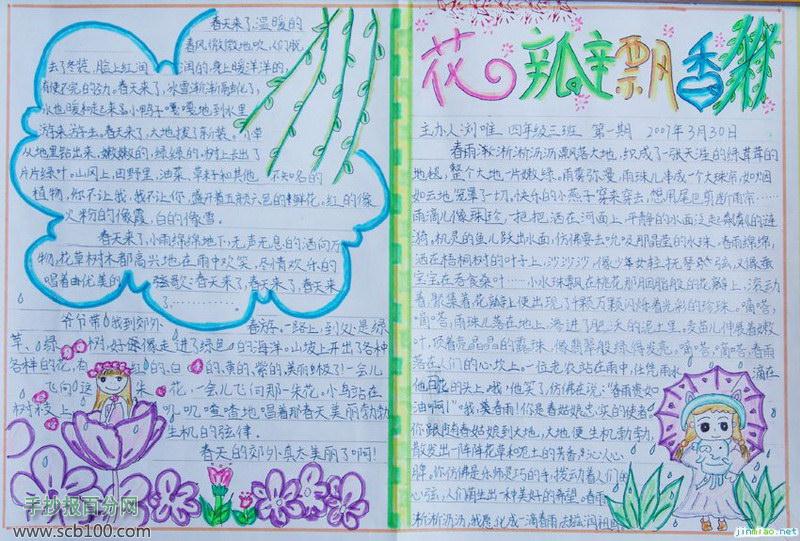 春天来了,温暖的
春风微微地吹,人们脱
去了冬装,脸上红润润的,身上暖洋洋的,
有使不完的劲。春天来了,冰雪渐渐融化了,
水也暖和起来,小鸭子嘎嘎地到水里
游来游去。春天来了,大地披了新装。小草
从地里钻出来,嫩嫩的,绿绿的,树上长出了
片片绿叶。山冈上,田野里,油菜,草籽和其他不知名的
植物,你不让我,我不让你,盛开着五颜六色的鲜花,红的像
火,粉的像霞,白的像雪。
春天来了,小雨绵绵地下,无声无息的洒向万
物,花草树木都高兴地在雨中欢笑,尽情欢乐的
唱着曲优美的 强歌:春天来了,春天来了,春天来
了…………
爷爷带我到郊外春游,一路上,到处是绿
草、绿树,好像像走进了绿色的海洋。山坡上开出了各种
各样的花,有红的、白的、黄的、紫的,美丽极了!一会儿
飞向这朵花,一会儿飞向那一朵花,小鸟站在
树枝上叽叽喳喳地唱着那春天美丽勃勃
生机的弦律。
春天的郊外真太美丽了啊!
花瓣飘香
主办人 刘唯 四年级三班 第一期 2007年3月30日
春雨淅淅沥沥飘落大地,织成了一张天涯的绿茸茸的
地毯,整个大地一片嫩绿。雨雾弥漫,雨珠儿串成一个大珠帘,如烟
如云地笼罩了一切,快乐的小燕子穿来穿去,想用尾巴剪断雨帘……
雨滴儿像珠珍,一把把洒在河面上,平静的水面泛起粼粼的涟
漪,机灵的鱼儿跃出水面,仿佛要去吮吸那晶莹的水珠。春雨绵绵,
洒在梧桐树的叶子上,沙沙沙沙,像少女轻抚琴弦,又像蚕
宝宝在吞食桑叶……小水珠飘在桃花那胭脂般的花瓣上,滚动
着,聚集着花瓣上便出现了千颗万颗闪烁着光彩的珍珠。嘀嗒,
嘀嗒,雨珠儿落在地上,渗进了肥沃的泥土里。麦苗儿伸展着嫩
叶,顶着亮晶晶的露珠,像翡翠般绿得发亮。嘀嗒,嘀嗒,春雨
落在人们的心坎上。一位老农站在雨中,任凭雨水滴在
他花的头上,哦,他笑了,仿佛在说:“春雨贵如
油啊!”哦,美春雨!你是春姑娘忠实的使者,
你跟随春姑娘到大地,大地便生机勃勃,
散发出一阵阵花草和泥土的芳香,沁人心
脾。你仿佛是乐师灵巧的手,拨动着人们的
心弦,人们萌生出一种美好的希望。春雨
淅淅沥沥,我愿化成一滴春雨去滋润祖国
手抄报百分网
www.scb100.com
jinmiao.net